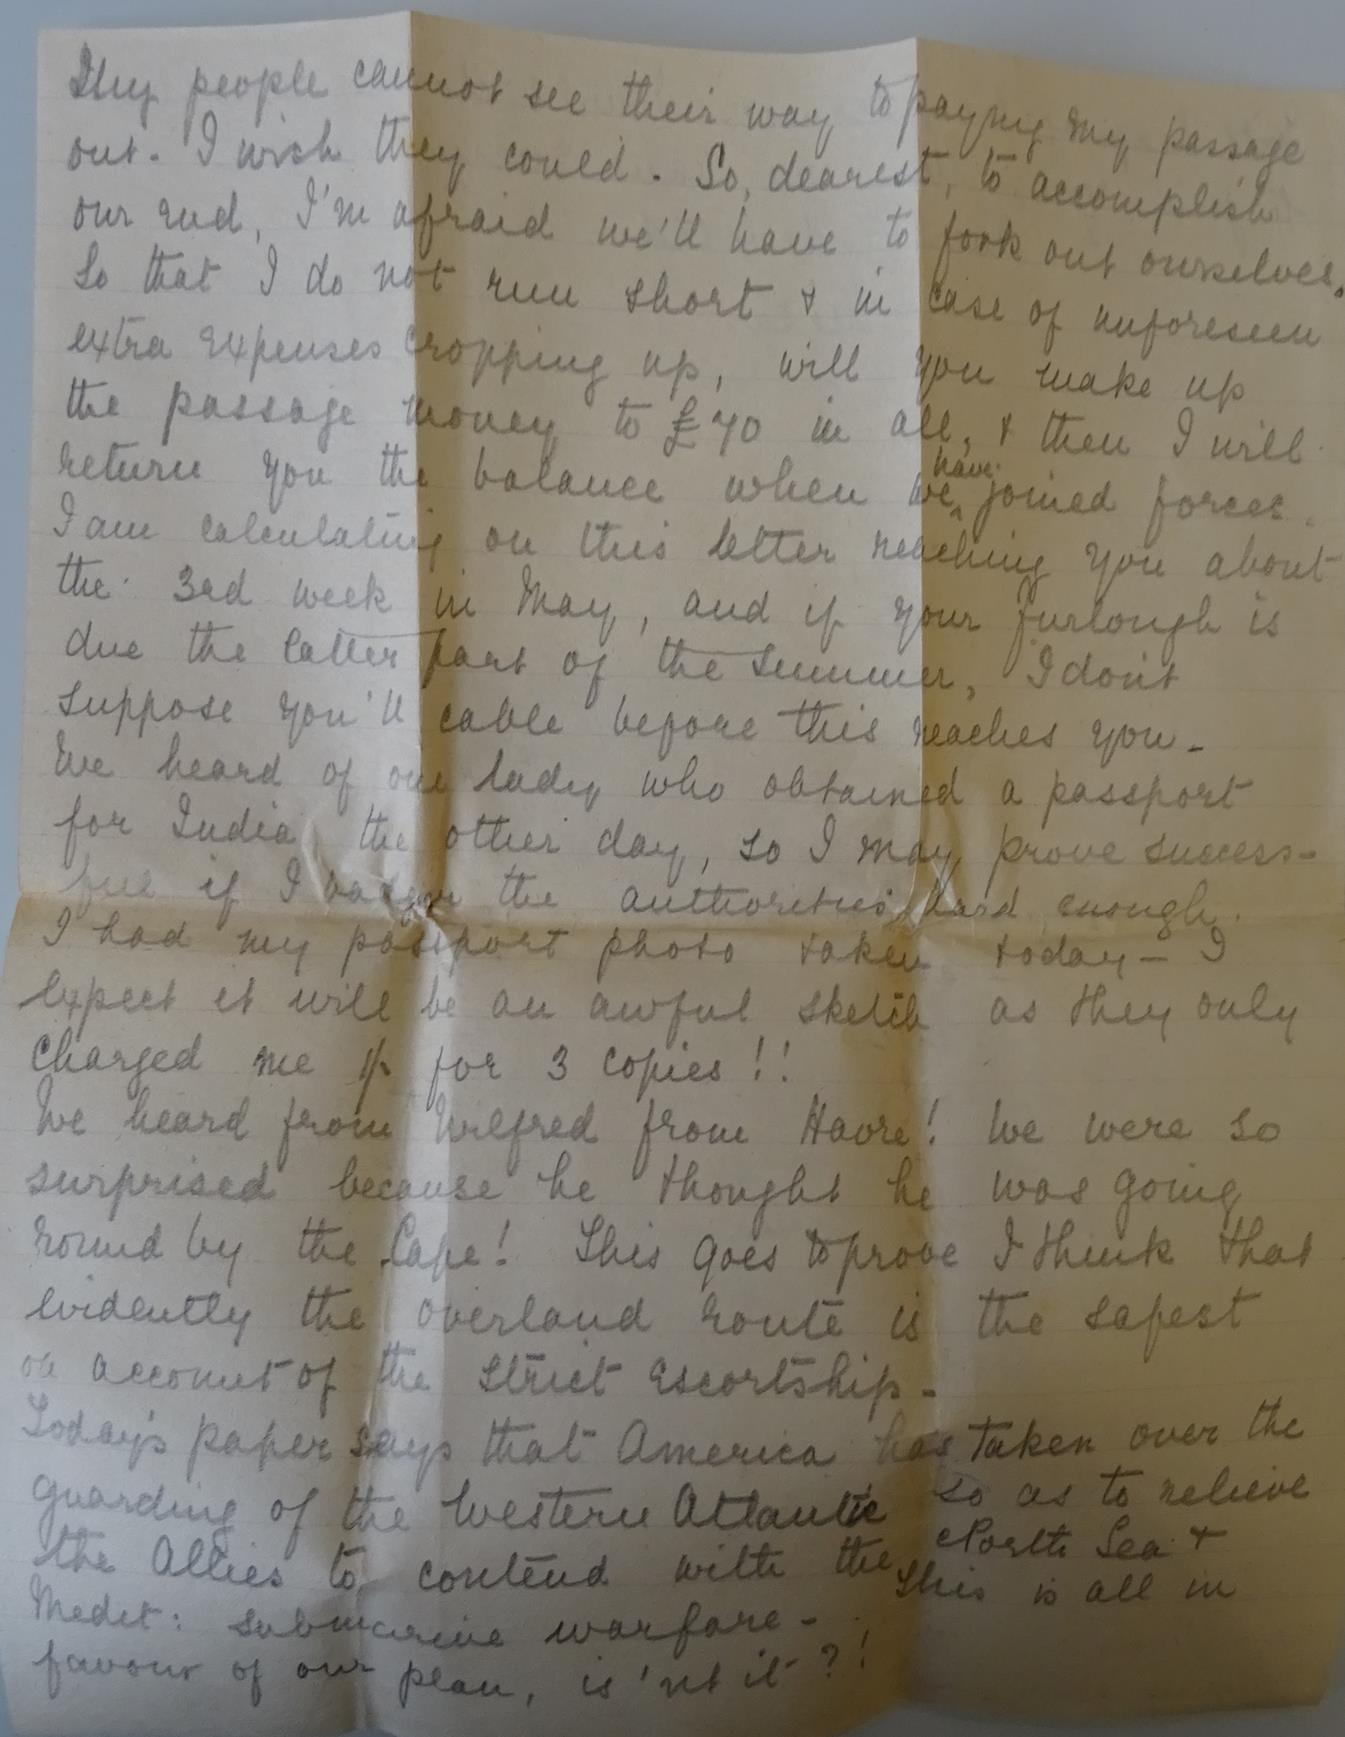 My people cannot see their way to paying my passage
out. I wish they could. So, dearest, to accomplish
our end, I'm afraid we'll have to fork out ourselves.
So that I do not run short & in case of unforeseen
extra expenses cropping up, will you make up
the passage money to £70 in all, & then I will
return you the balance when we have joined forces.
I am calculating on this letter reaching you about
the 3rd week in May, and if your furlough is
due the latter part of the summer, I don't
suppose you'll cable before this reaches you -
We heard of one lady who obtained a passport
for India the other day, so I may prove success-
ful if I the authorities hard enough.
I had my passport photo taken today - I
expect it will be an awful sketch as they only
charged me 1/- for 3 copies!!
We heard from Wilfred from Havre! We were so
surprised because he thought he was going
round by the Cape! This goes to prove I think that
evidently the overland route is the safest
on account of the strict escortship -
Today's paper says that America has taken over the
guarding of the Western Atlantic so as to relieve
the Allies to contend with the North Sea +
Medit: submarine warfare - This is all in
favour of our plan, is'nt it?!